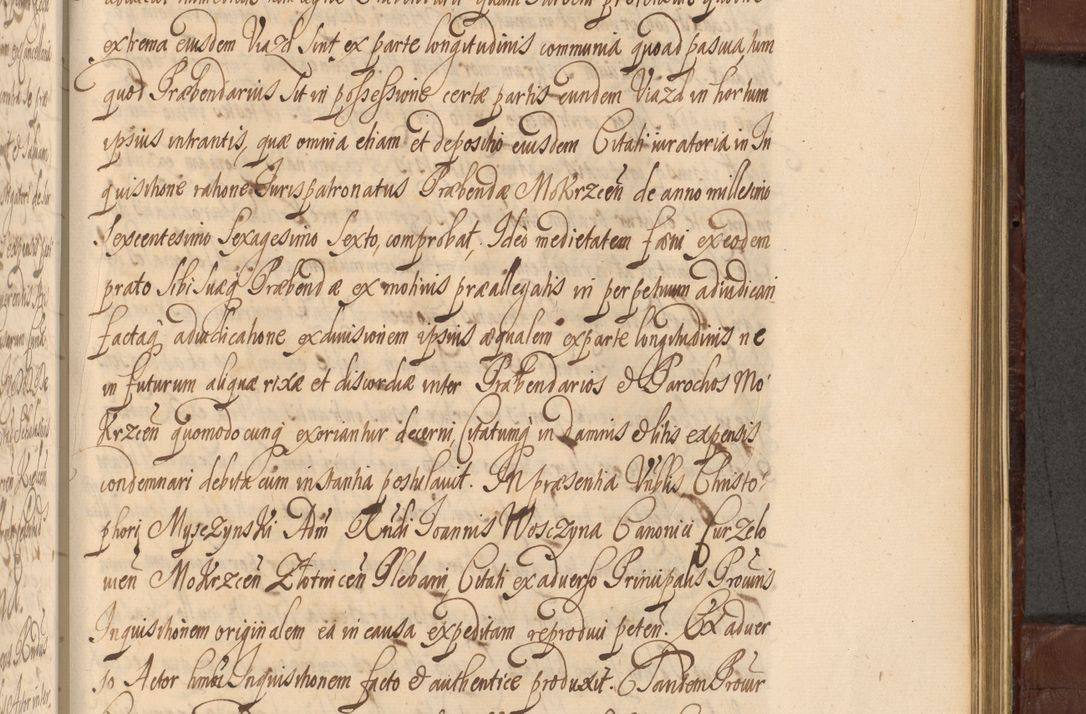 extrema eiusdem Viazd sint ex parte longitudinis communia quoad pascua, tum
quod Præbendarius sit in possessione certæ partis eundem Viazd in hortum
ipsius intrantis, quæ omnia etiam et depositio eiusdem Citati iuratoria in In
quisitione ratione Jurispatronatus Præbendæ Mokrzceń de anno millesimo
sexcentesimo sexagesimo sexto, comprobat, Ideo medietatem fæni ex eodem
prato sibi suæq Præbendæ ex motivis præallegatis in perpetuum adiudicari
factaq adiudicatione ex divisionem ipsius æqualem ex parte longitudinis ne
in futurum aliquæ rixæ et discordiæ inter Præbendarios & Parochos Mo
krzceń quomodocunq exoriantur decerni, Citatumq in damnis & litis expensis
condemnari debita cum instantia postulavit. In præsentia Nublis Christo
phori Myszczynski Adm Rndi Joannis Wosczyna Canonici Curzelo
vień Mokrzceń Zlotniceń Plebani, Citati ex adverso Principalis Provuis
Inquisitionem originalem ea in causa expeditam reproduci peteń. Ex adver
so Actor hmoi Inquisitionem facto & authentice produxit. Tandem Provir